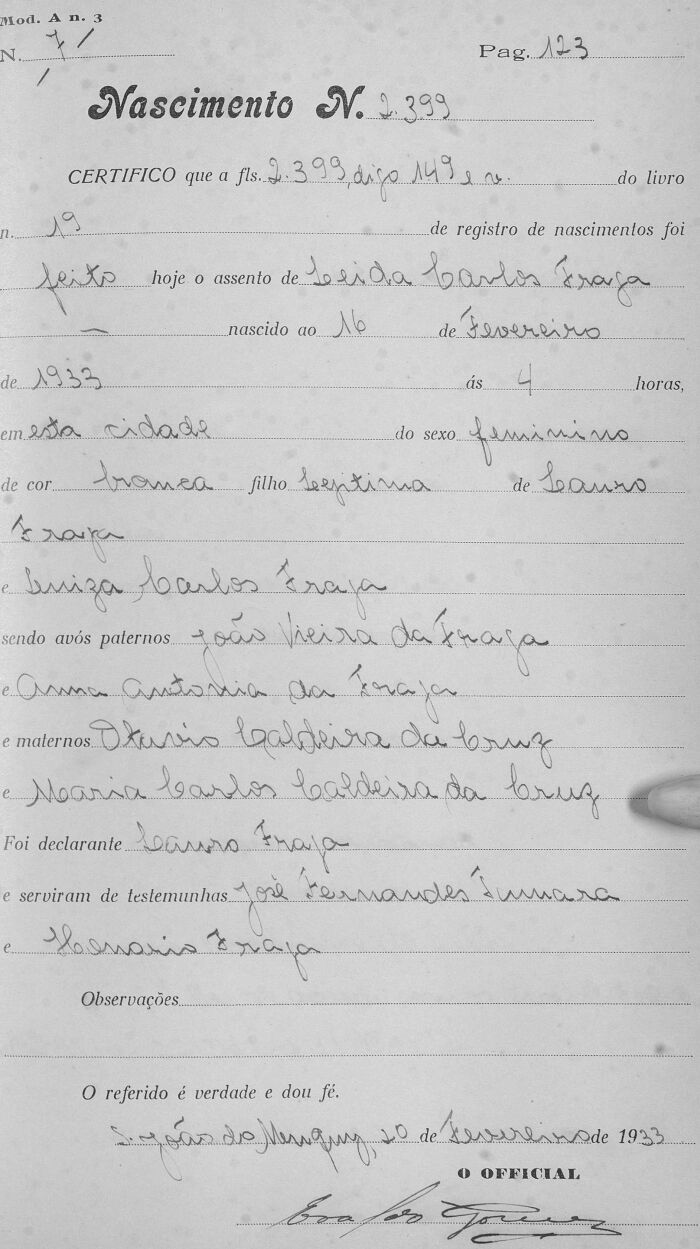 Mod. A n. 3
N. 7
Pag. 123
Nascimento N. 2.399
CERTIFICO que a fls. 2.399, digo 149 e v. do livro
n. 19 de registro de nascimentos foi
feito hoje o assento de Leida Carlos Fraga
— nascido ao 16 de Fevereiro
de 1933 ás 4 horas,
em esta cidade do sexo feminino
de cor branca filho Legitima de Lauro
Fraga
e Luiza Carlos Fraga
sendo avós paternos João Vieira da Fraga
e Anna Antonia da Fraga
e maternos Otavio Caldeira da Cruz
e Maria Carlos Caldeira da Cruz
Foi declarante Lauro Fraga
e serviram de testemunhas José Fernandes
e Fraga
Observações
O referido é verdade e dou fé.
S. João do 20 de Fevereiro de 1933
O OFFICIAL